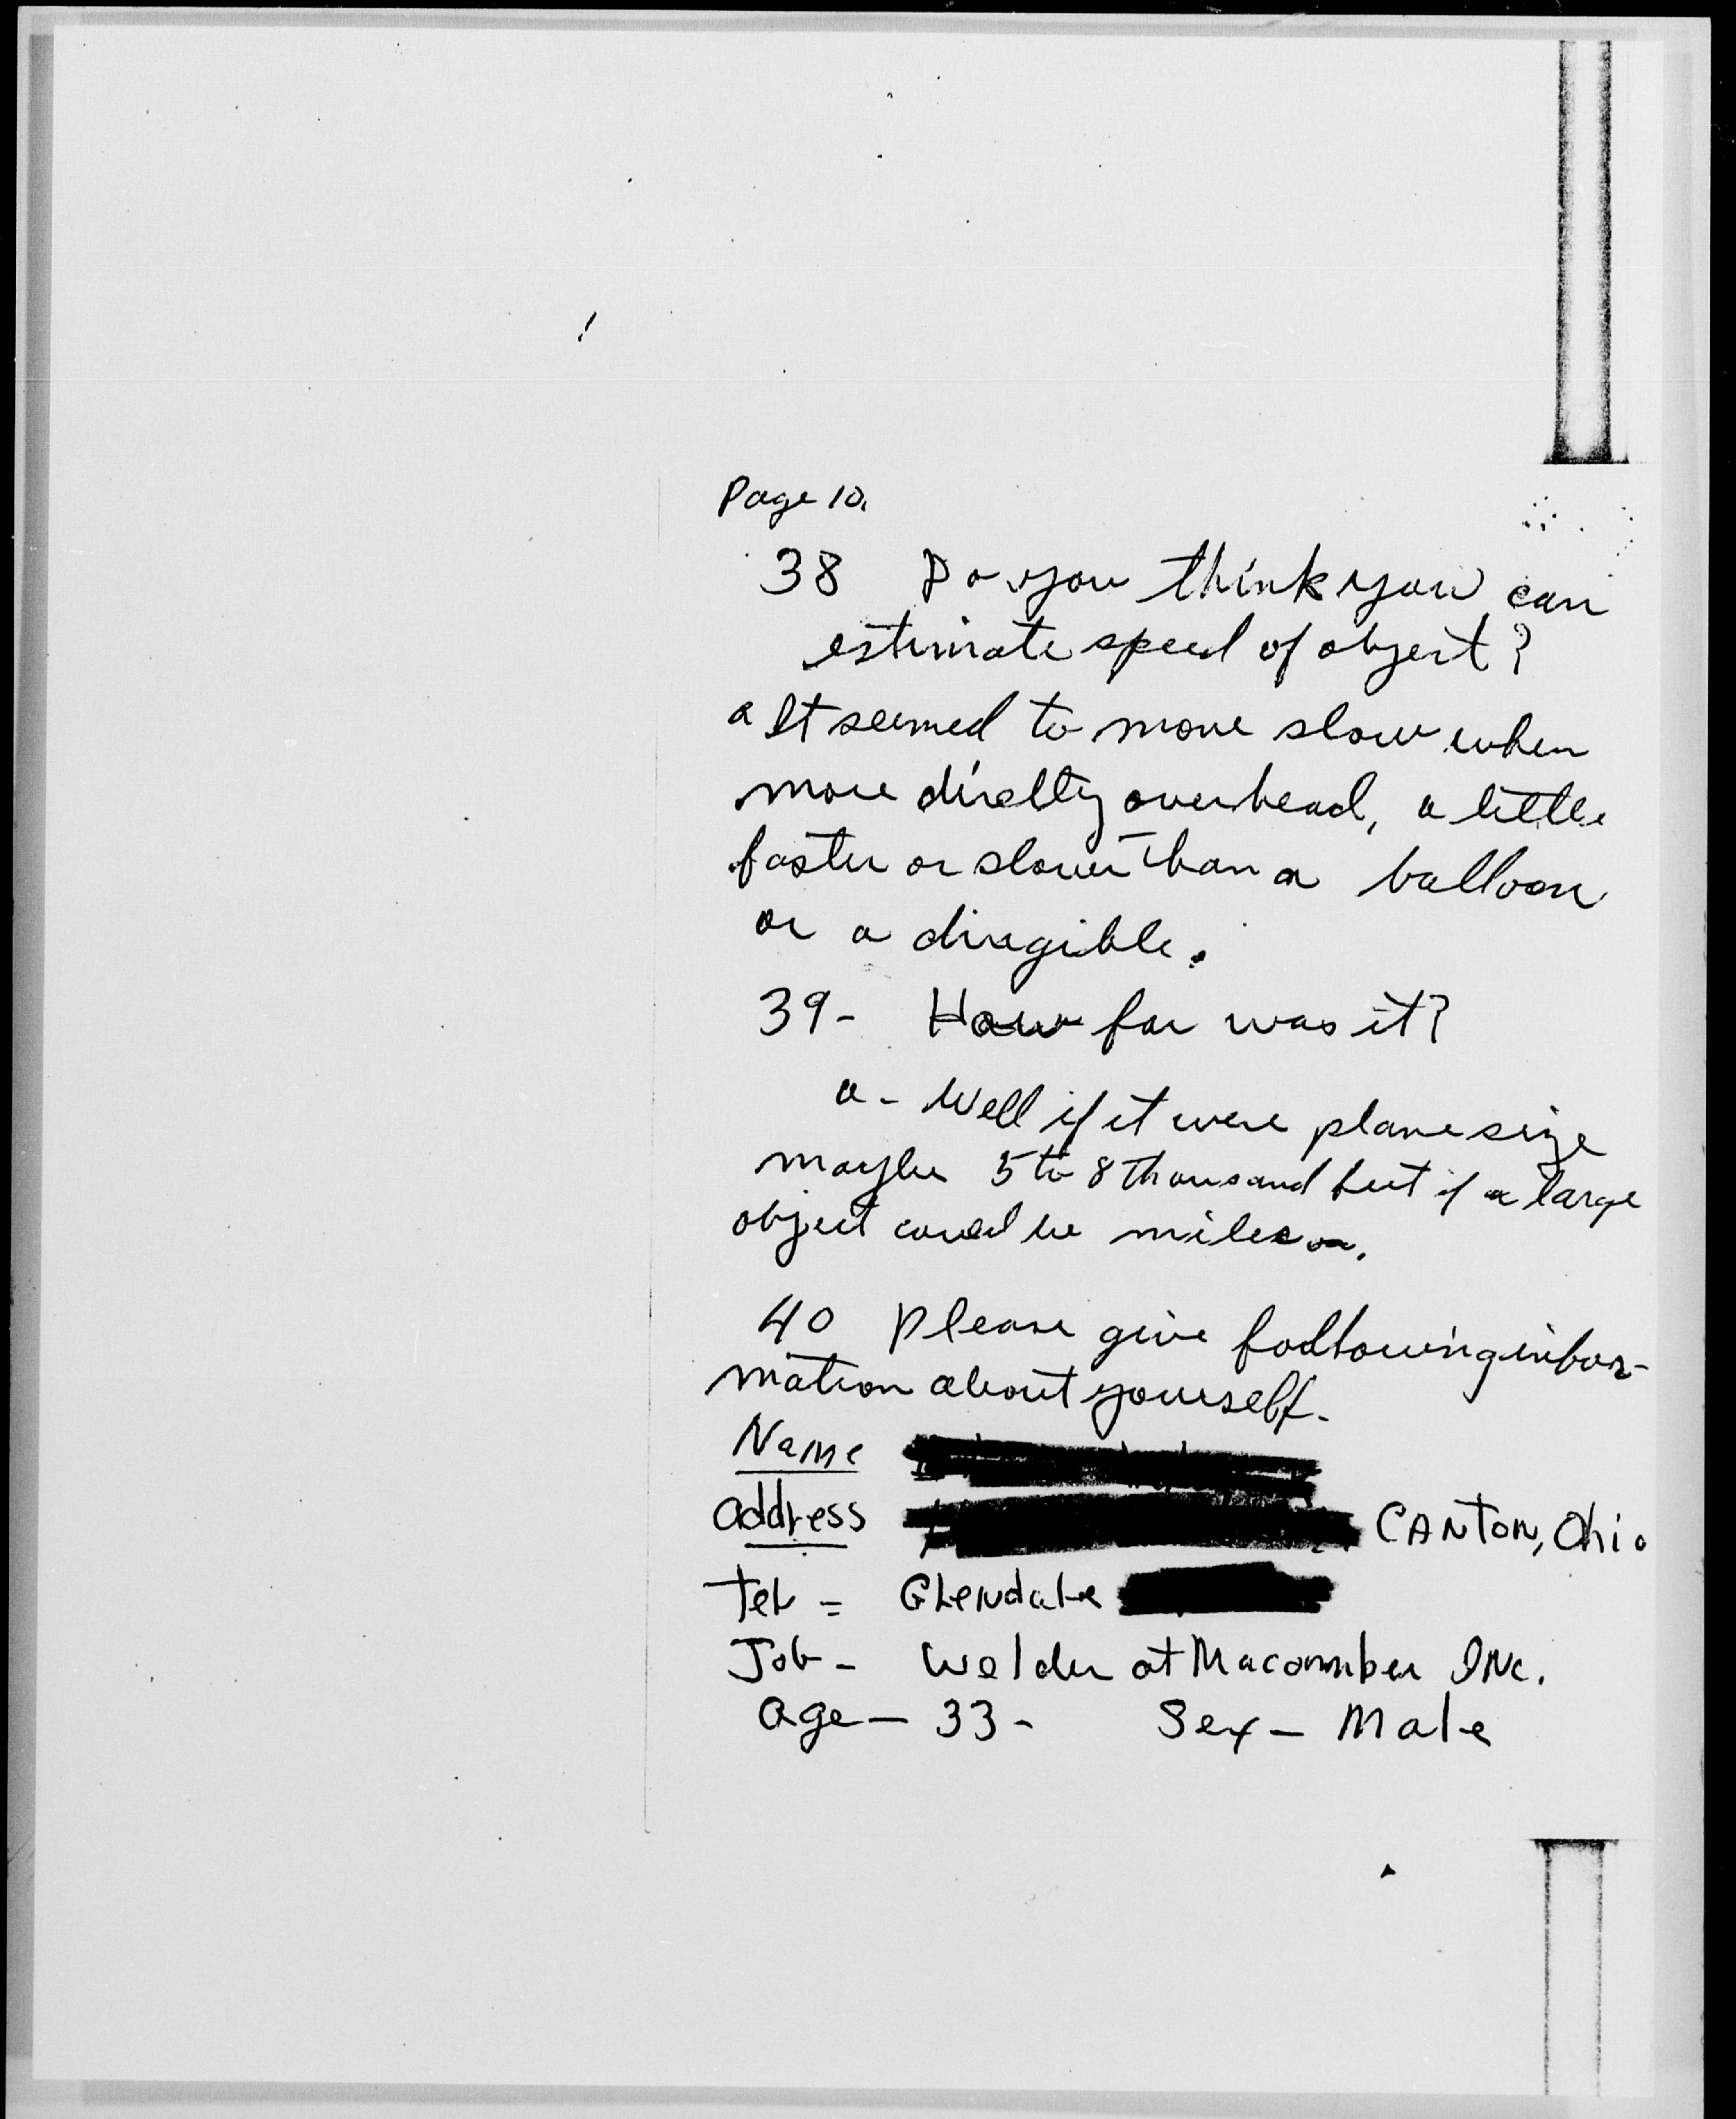 Page 10.
38 Do you think you can
estimate speed of object?
a It seemed to move slow when
more directly overhead, a little
faster or slower than a balloon
or a diregible.
39- How far was it?
a- Well if it were plane size
maybe 5 to 8 thousand feet if a large
object could be miles.
40 Please give following infor-
mation about yourself.
Name
address CANTON, Ohio
Tel = Glendale
Job- Welder at Macomber INc.
age- 33- Sex- Male